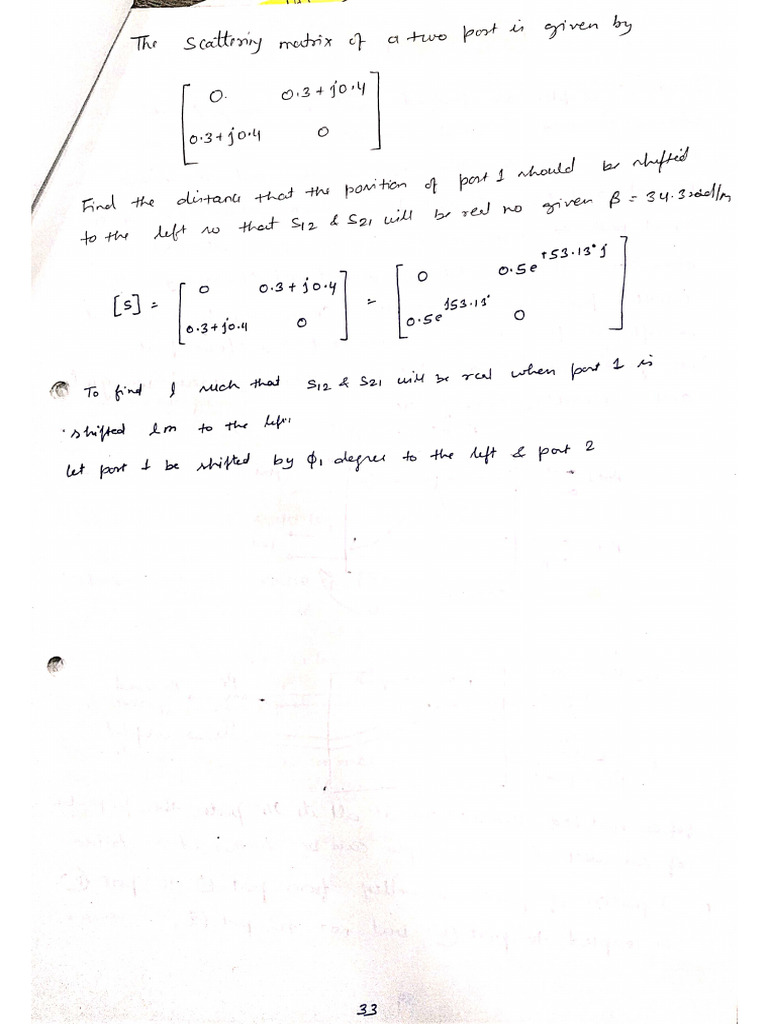 The Scattering matrix of a two port is given by
[ 0. 0.3 + j0.4
0.3 + j0.4 0 ]
Find the distance that the position of port 1 should be shifted
to the left so that S12 & S21 will be real no given β = 34.3 rad/m
[S] = [ 0 0.3 + j0.4
0.3 + j0.4 0 ] = [ 0 0.5e^+53.13°j
0.5e^j53.13° 0 ]
To find l such that S12 & S21 will be real when port 1 is
shifted lm to the left.
Let port 1 be shifted by ϕ1 degree to the left & port 2
33